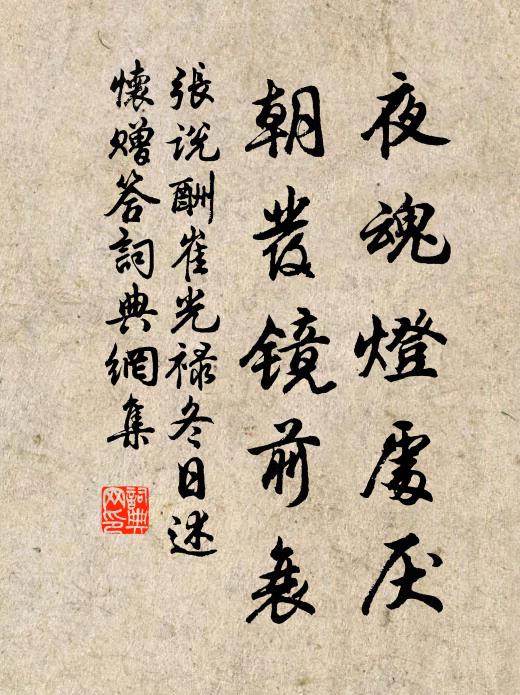 夜魂燈處厌
朝發镜前衰
張說酬崔光禄冬日述
懷贈答詞典網集
詞典
网印